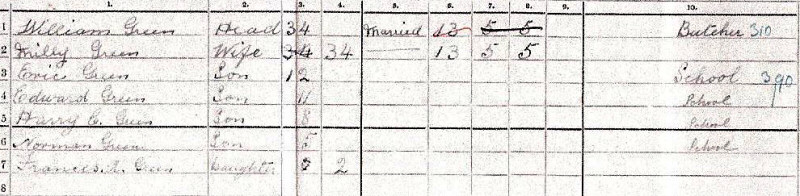 1. 2. 3. 4. 5. 6. 7. 8. 9. 10.
1 William Green Head 34 Married 13 5 5 Butcher 310
2 Milly Green Wife 34 34 13 5 5
3 Green Son 12 School 390
4 Edward Green Son 11 School
5 Harry C. Green Son 8 School
6 Norman Green Son 5 School
7 Frances A. Green Daughter 2
8